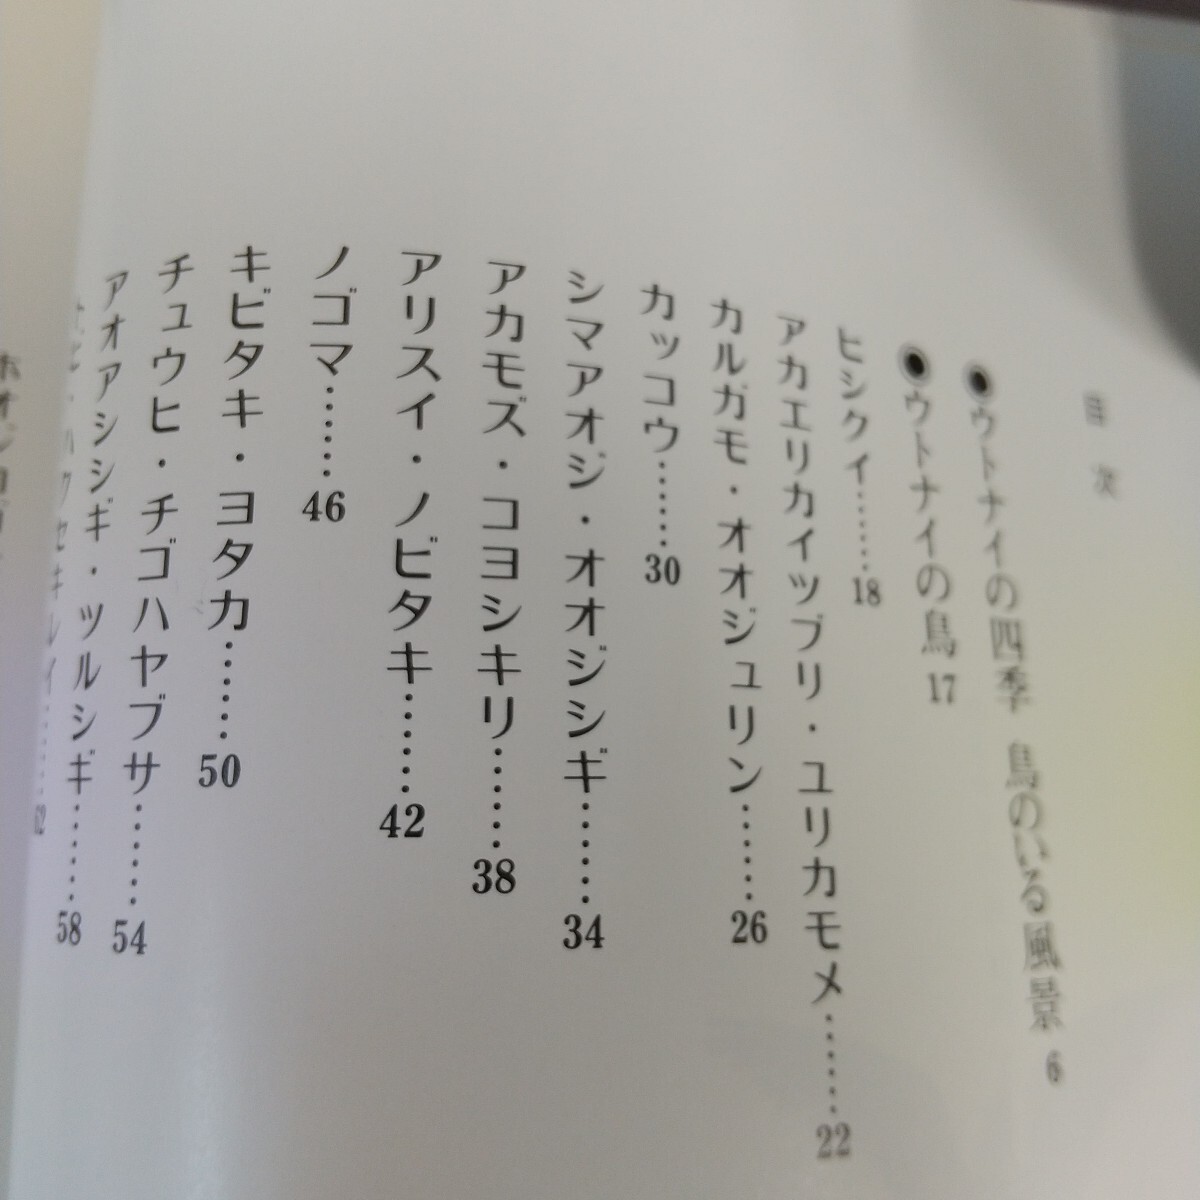 目次
●ウトナイの四季 鳥のいる風景 6
●ウトナイの鳥 17
ヒシクイ……18
アカエリカイツブリ・ユリカモメ……22
カルガモ・オオジュリン……26
カッコウ……30
シマアオジ・オオジシギ……34
アカモズ・コヨシキリ……38
アリスイ・ノビタキ……42
ノゴマ……46
キビタキ・ヨタカ……50
チュウヒ・チゴハヤブサ……54
アオアシシギ・ツルシギ……58
ハクセキレイ……62